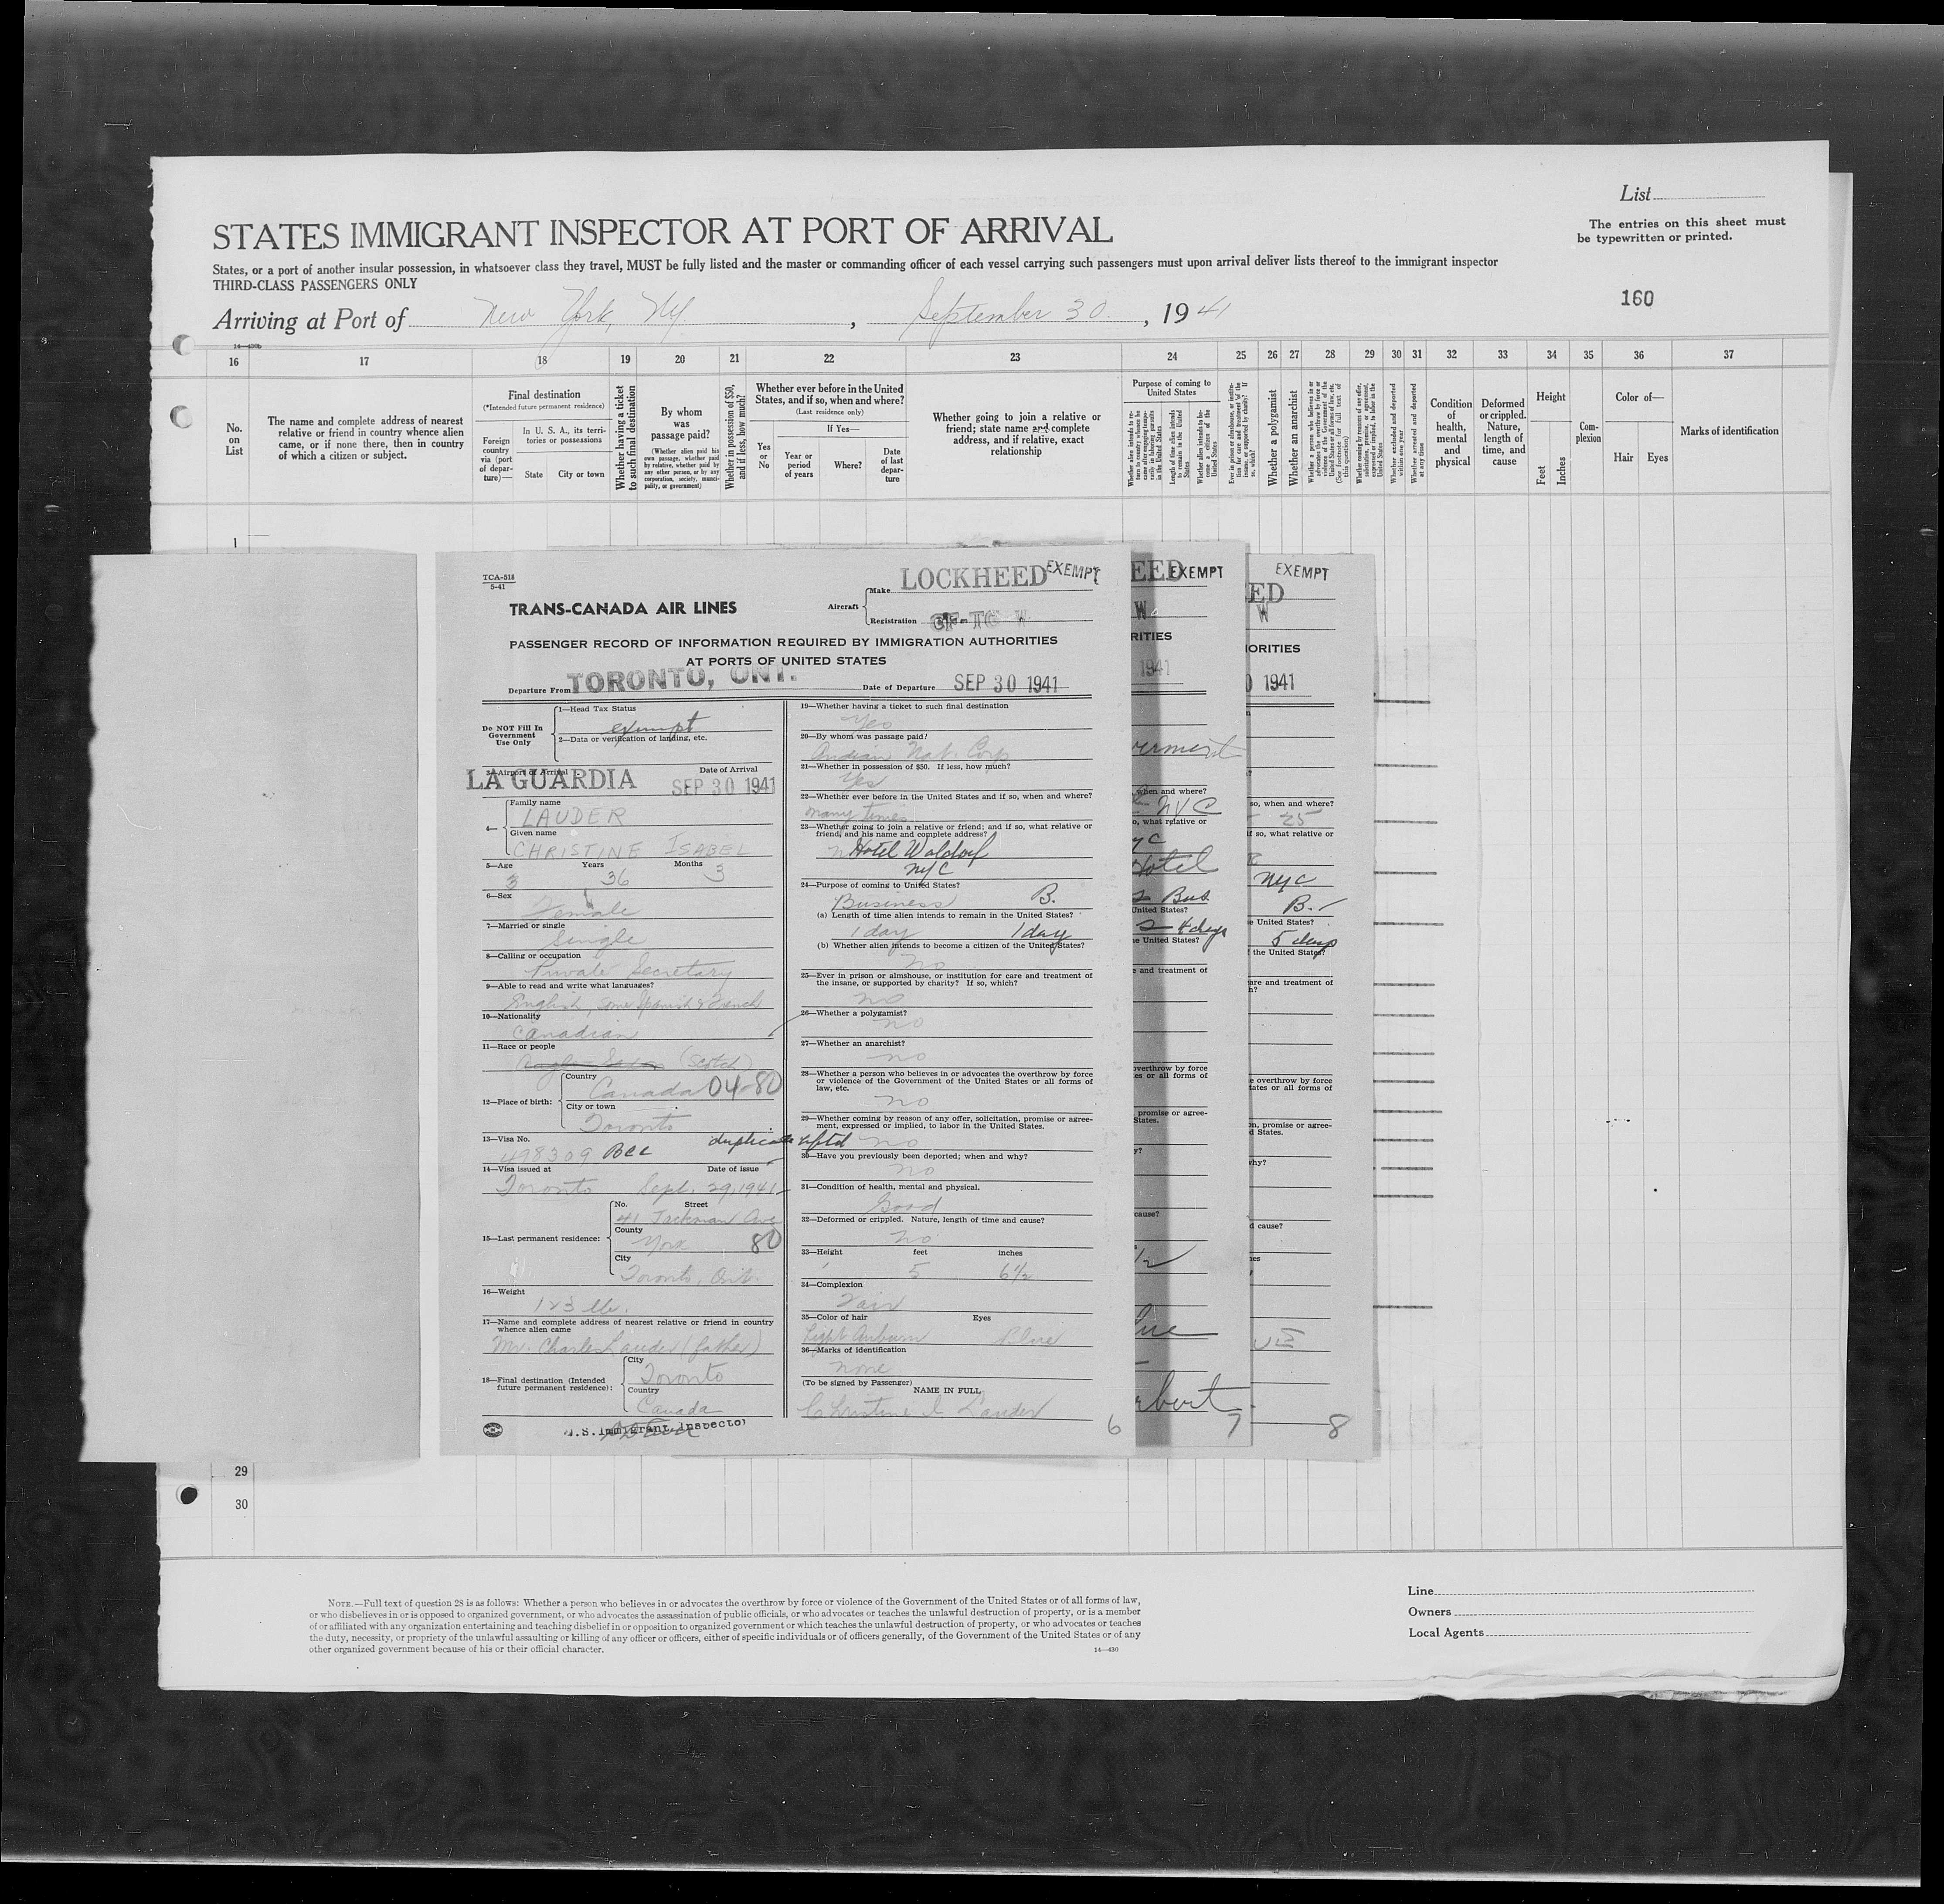 List
The entries on this sheet must
be typewritten or printed.
STATES IMMIGRANT INSPECTOR AT PORT OF ARRIVAL
States, or a port of another insular possession, in whatsoever class they travel, MUST be fully listed and the master or commanding officer of each vessel carrying such passengers must upon arrival deliver lists thereof to the immigrant inspector
THIRD-CLASS PASSENGERS ONLY
160
Arriving at Port of New York, NY. , September 30 , 1941
16 17 18 19 20 21 22 23 24 25 26 27 28 29 30 31 32 33 34 35 36 37
No.
on
List
The name and complete address of nearest
relative or friend in country whence alien
came, or if none there, then in country
of which a citizen or subject.
Final destination
(*Intended future permanent residence)
Foreign
country
via (port
of depar-
ture)—
In U. S. A., its terri-
tories or possessions
State City or town
Whether having a ticket
to such final destination
By whom
was
passage paid?
(Whether alien paid his
own passage, whether paid
by any other person, or by any
corporation, society, munici-
pality, or government)
Whether in possession of $50,
and if less, how much?
Whether ever before in the United
States, and if so, when and where?
(Last residence only)
Yes
or
No
If Yes—
Year or
period
of years
Where?
Date
of last
depar-
ture
Whether going to join a relative or
friend; state name and complete
address, and if relative, exact
relationship
Purpose of coming to
United States
Length of time alien intends
to remain in the United
States
Whether alien intends to be-
come a citizen of the
United States
Whether a polygamist
Whether an anarchist
Condition
of
health,
mental
and
physical
Deformed
or crippled.
Nature,
length of
time, and
cause
Height
Feet
Inches
Com-
plexion
Color of—
Hair Eyes
Marks of identification
1
TCA-518
5-41
TRANS-CANADA AIR LINES
Aircraft
Make LOCKHEED EXEMPT
Registration CF-TC W
PASSENGER RECORD OF INFORMATION REQUIRED BY IMMIGRATION AUTHORITIES
AT PORTS OF UNITED STATES
Departure From TORONTO, ONT. Date of Departure SEP 30 1941
Do NOT Fill In
Government
Use Only
1—Head Tax Status
exempt
2—Data or verification of landing, etc.
3—Airport of Arrival Date of Arrival
LA GUARDIA SEP 30 1941
4—
Family name
LAUDER
Given name
CHRISTINE ISABEL
5—Age Years Months
3 36 3
6—Sex
Female
7—Married or single
Single
8—Calling or occupation
Private Secretary
9—Able to read and write what languages?
English, some Spanish & French
10—Nationality
Canadian
11—Race or people
(Scotch)
12—Place of birth:
Country
Canada 04-80
City or town
Toronto
13—Visa No. duplicate
498309 BCC
14—Visa issued at Date of issue
Toronto Sept. 29, 1941
15—Last permanent residence:
No. Street
41 Jackman Ave
County
York 80
City
Toronto, Ont.
16—Weight
123 lb.
17—Name and complete address of nearest relative or friend in country
whence alien came
Mr. Charles Lauder (father)
18—Final destination (Intended
future permanent residence):
City
Toronto
Country
Canada
U.S. Immigrant Inspector
19—Whether having a ticket to such final destination
Yes
20—By whom was passage paid?
Andian Nat. Corp
21—Whether in possession of $50. If less, how much?
Yes
22—Whether ever before in the United States and if so, when and where?
many times
23—Whether going to join a relative or friend; and if so, what relative or
friend, and his name and complete address?
Hotel Waldorf
NYC
24—Purpose of coming to United States?
Business B.
(a) Length of time alien intends to remain in the United States?
1 day 1 day
(b) Whether alien intends to become a citizen of the United States?
No
25—Ever in prison or almshouse, or institution for care and treatment of
the insane, or supported by charity? If so, which?
no
26—Whether a polygamist?
no
27—Whether an anarchist?
no
28—Whether a person who believes in or advocates the overthrow by force
or violence of the Government of the United States or all forms of
law, etc.
no
29—Whether coming by reason of any offer, solicitation, promise or agree-
ment, expressed or implied, to labor in the United States.
no
30—Have you previously been deported; when and why?
no
31—Condition of health, mental and physical.
Good
32—Deformed or crippled. Nature, length of time and cause?
no
33—Height feet inches
5 6½
34—Complexion
Fair
35—Color of hair Eyes
Light Auburn Blue
36—Marks of identification
none
(To be signed by Passenger)
NAME IN FULL
Christine I. Lauder
6
EED EXEMPT
W
RITIES
1941
when and where?
NYC
o, what relative or
yc
Hotel
2 Bus.
United States?
4 days
e United States?
e and treatment of
overthrow by force
es or all forms of
promise or agree-
States.
y?
cause?
1/2
lue
rbert
7
EXEMPT
ED
W
ORITIES
1941
so, when and where?
25
if so, what relative or
NYC
B.
e United States?
5 days
f the United States?
are and treatment of
h?
e overthrow by force
tates or all forms of
on, promise or agree-
d States.
why?
d cause?
es
8
29
30
NOTE.—Full text of question 28 is as follows: Whether a person who believes in or advocates the overthrow by force or violence of the Government of the United States or of all forms of law,
or who disbelieves in or is opposed to organized government, or who advocates the assassination of public officials, or who advocates or teaches the unlawful destruction of property, or is a member
of or affiliated with any organization entertaining and teaching disbelief in or opposition to organized government or which teaches the unlawful destruction of property, or who advocates or teaches
the duty, necessity, or propriety of the unlawful assaulting or killing of any officer or officers, either of specific individuals or of officers generally, of the Government of the United States or of any
other organized government because of his or their official character.
14—430
Line
Owners
Local Agents